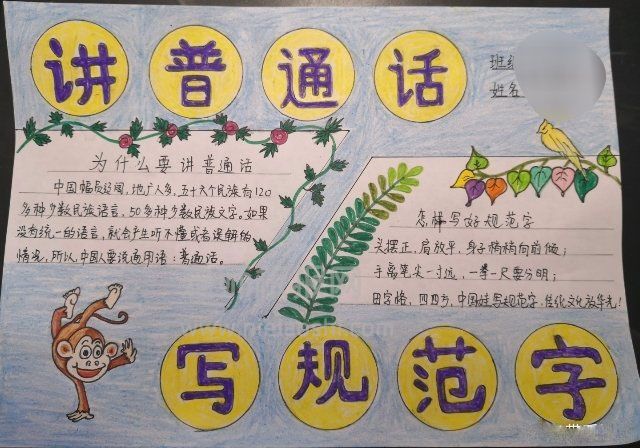 讲普通话
班级
姓名
为什么要讲普通话
中国幅员辽阔，地广人多，五十六个民族有120
多种少数民族语言，50多种少数民族文字。如果
没有统一的语言，就会产生听不懂或者误解的
情况，所以，中国人要说通用语：普通话。
怎样写好规范字
头摆正，肩放平，身子稍稍向前倾；
手离笔尖一寸远，一拳一尺要分明；
田字格，四四方，中国娃写规范字，传化文化放华光！
写规范字